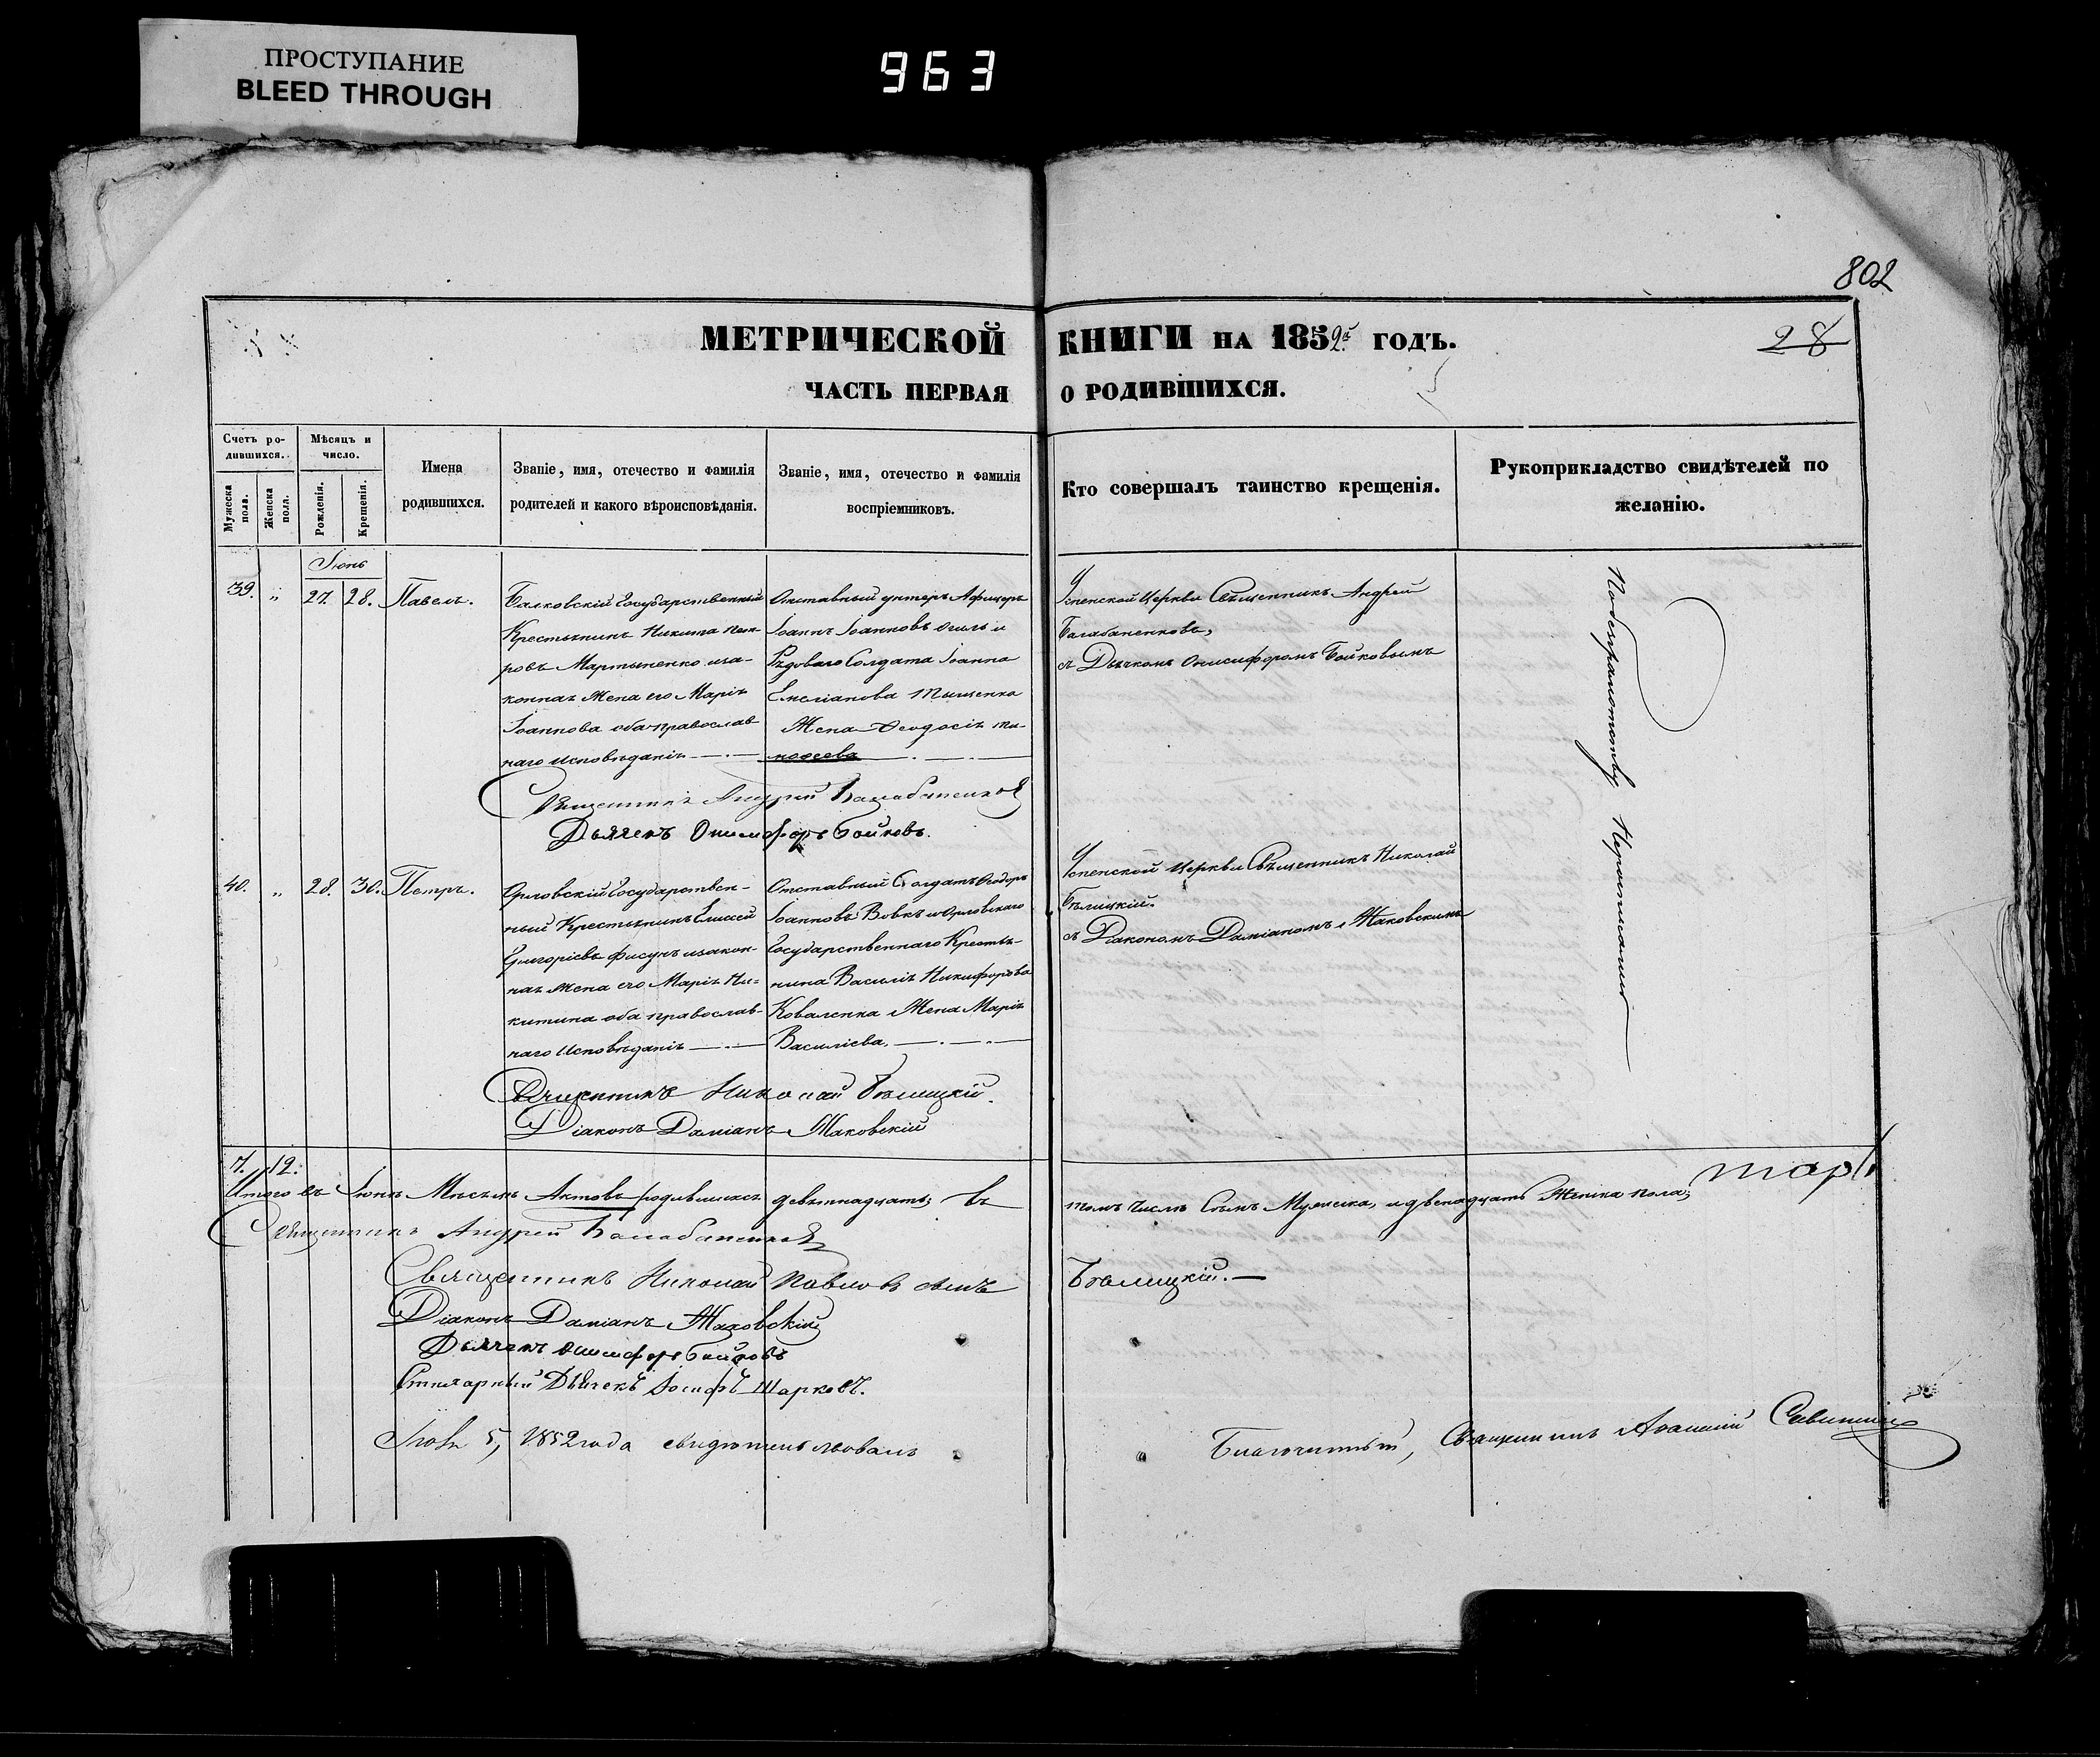 ПРОСТУПАНИЕ
BLEED THROUGH
963
802
28
МЕТРИЧЕСКОЙ КНИГИ НА 1852й ГОДЪ.
ЧАСТЬ ПЕРВАЯ О РОДИВШИХСЯ.
Счетъ ро-
дившихся.
Мѣсяцъ и
число.
Мужеска пола.
Женска пол.
Рожденія.
Крещенія.
Имена
родившихся.
Званіе, имя, отечество и фамилія
родителей и какого вѣроисповѣданія.
Званіе, имя, отечество и фамилія
воспріемниковъ.
Кто совершалъ таинство крещенія.
Рукоприкладство свидѣтелей по
желанію.
Іюнь
39. „ 27. 28. Павелъ.
Государственный
Крестьянинъ Никита Пет-
ровъ Мартыненко иза-
конная Жена его Марія
Іоаннова оба православ
наго исповѣданія
Отставный унтеръ Афицеръ
Іоаннъ Іоанновъ и
Рядоваго Солдата Іоанна
Емеліанова Тыщенка
Жена Ѳеодосія Ти-
моѳеева
Успенской Церкви Священникъ Андрей
Балабаненковъ,
съ Дьячкомъ Онисифоромъ Бойковымъ
По безграмотству Неросписались
Священникъ Андрей Балабаненковъ
Дьячекъ Онисифоръ Бойковъ.
40. „ 28. 30. Петръ.
Орловскій Государствен-
ный Крестьянинъ Елисей
Григоріевъ Фисунъ изакон-
ная Жена его Марія Ни-
китина оба православ-
наго Исповѣданія
Отставный Солдатъ Ѳеодоръ
Іоанновъ Вовкъ и Орловскаго
Государственнаго Крестья-
нина Василія Никифорова
Коваленка Жена Марія
Василіева.
Успенской Церкви Священникъ Николай
Бѣлицкій.
съ Діакономъ Даміаномъ Жаковскимъ
Священникъ Николай Бѣлицкій.
Діаконъ Даміанъ Жаковскій
7. 12.
Итого въ Іюнѣ Мѣсяцѣ Актовъ родившихся девятнадцать; въ томъ числѣ семь Мужеска, и двенадцать Женска пола;
Священникъ Андрей Балабаненковъ
Священникъ Николай Павловъ сынъ Бѣлицкій.
Діаконъ Даміанъ Жаковскій
Дьячекъ Онисифоръ Бойковъ
Дьячекъ Іосифъ Шарковъ.
5, 1852 года свидѣтельствовалъ Благочинный, Священникъ